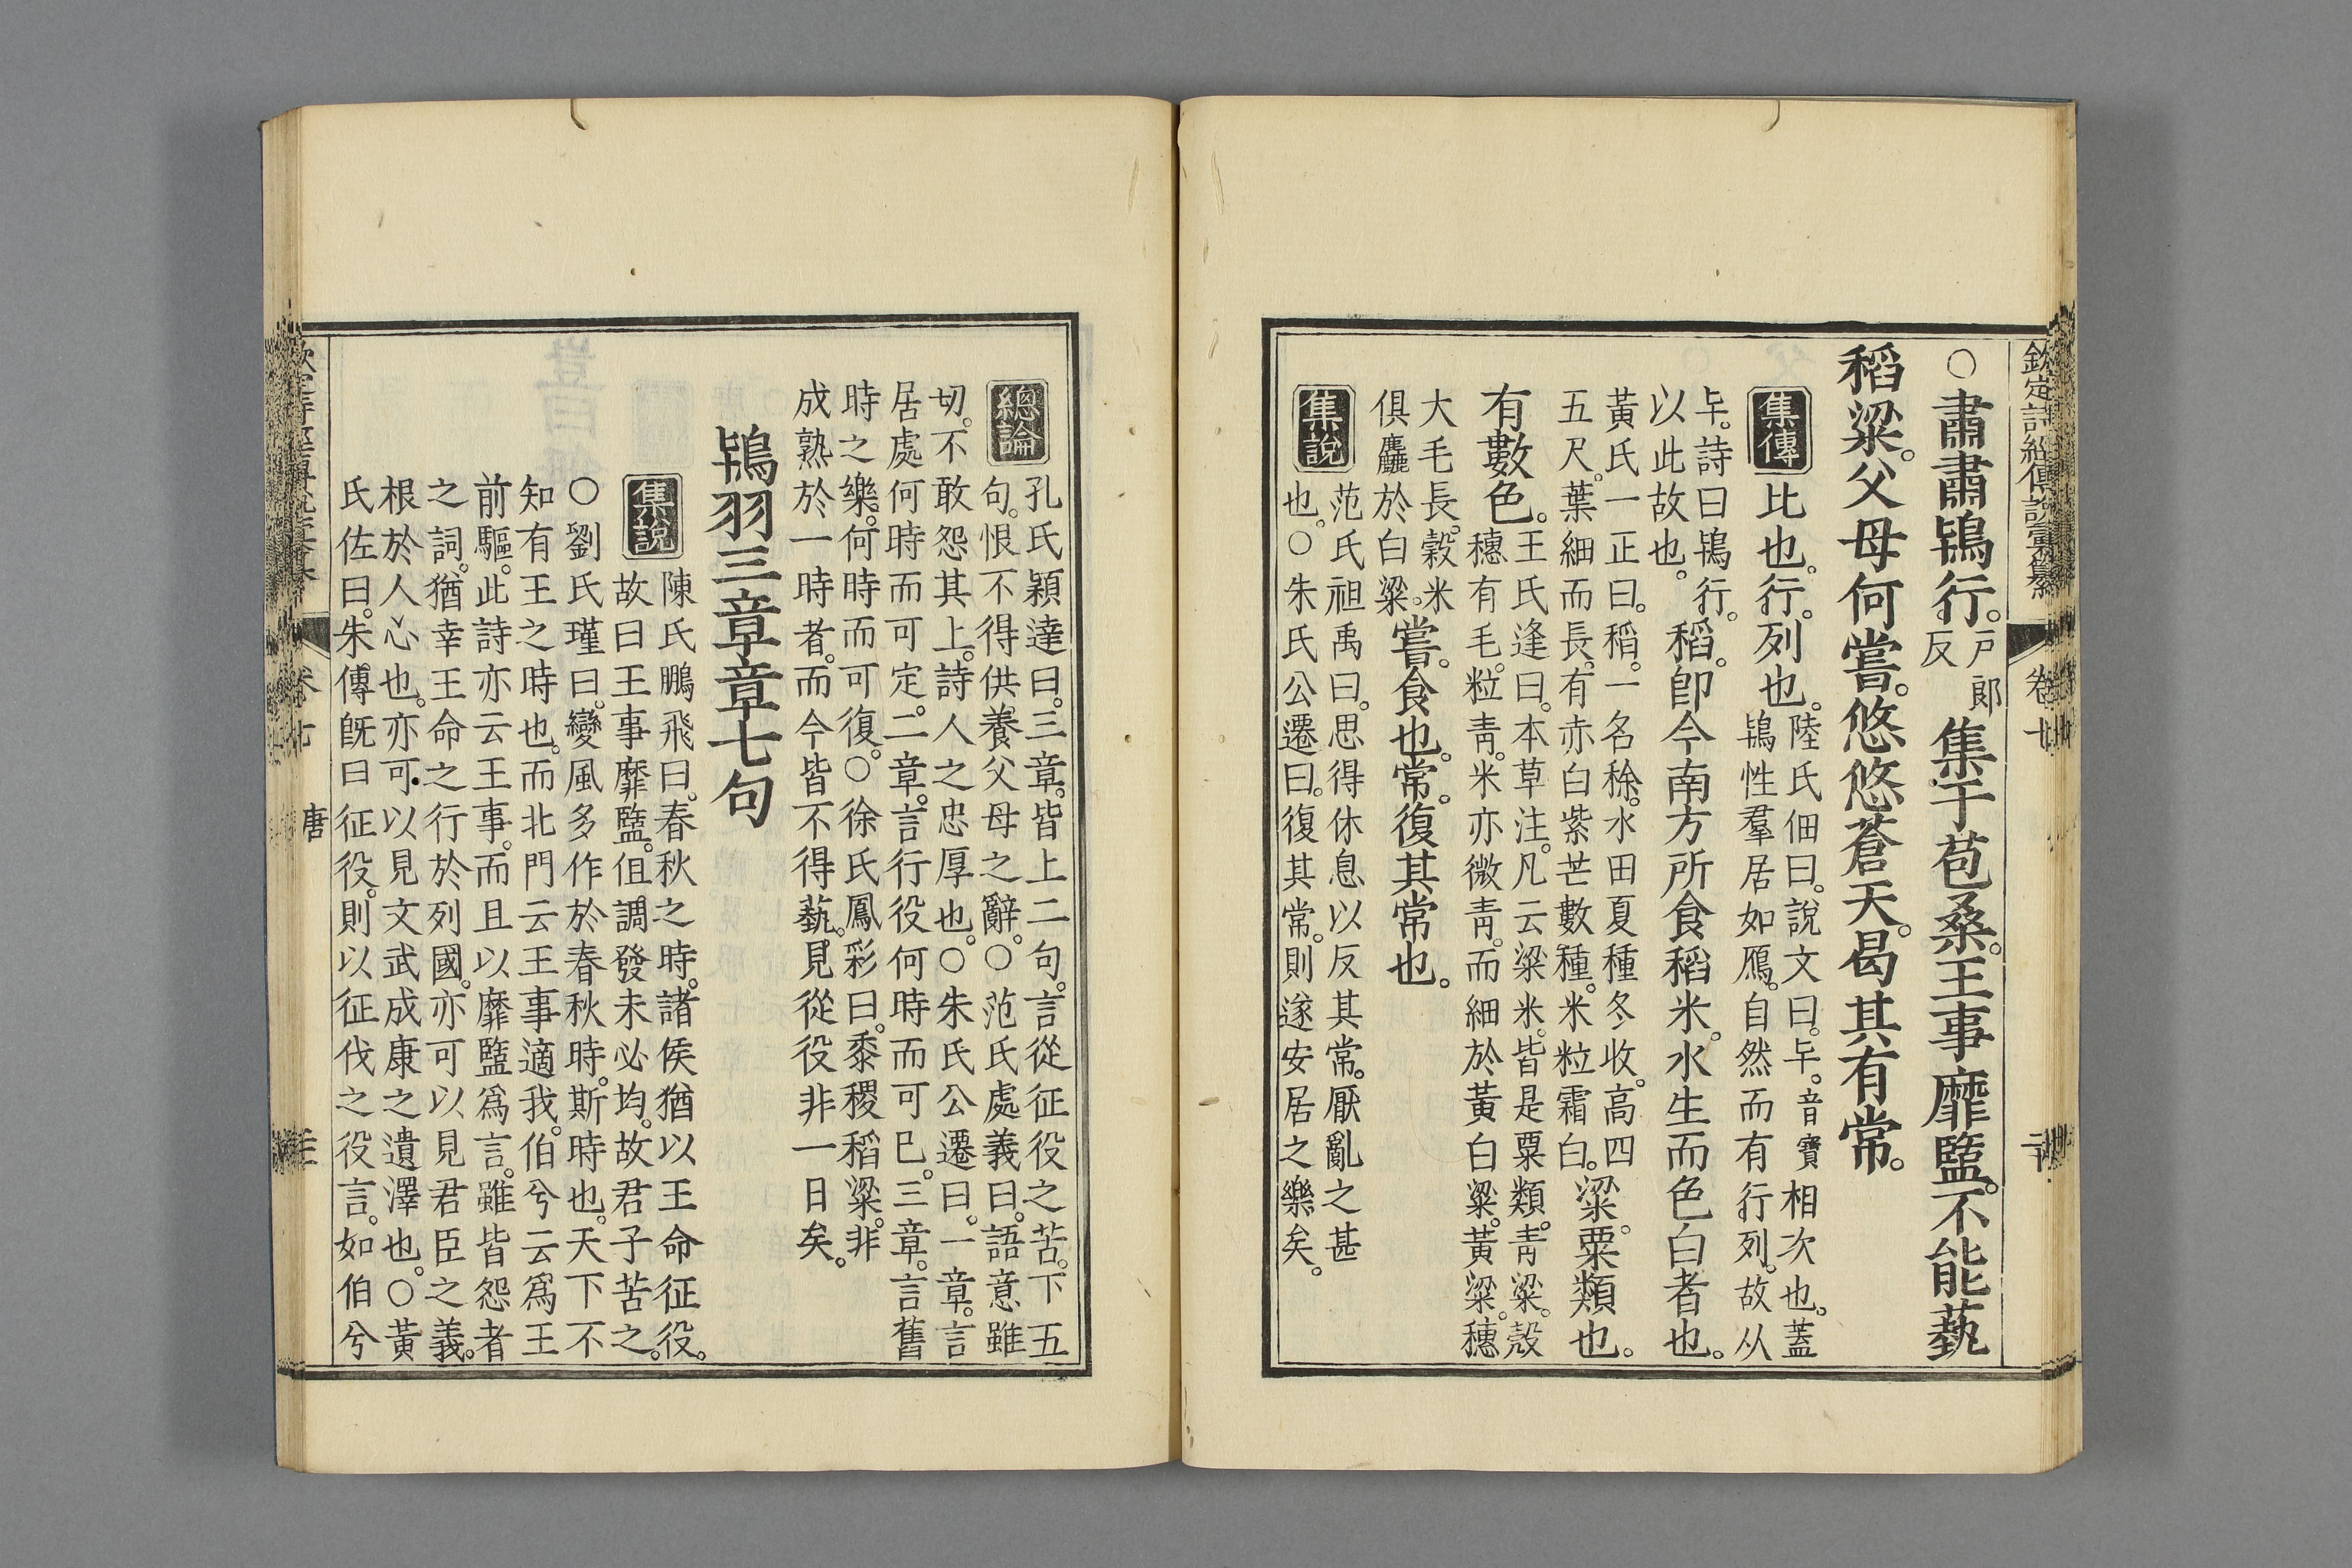 欽定詩經傳說彙纂
卷七
○肅肅鴇行。戶郎反集于苞桑。王事靡盬。不能蓺
稻粱。父母何嘗。悠悠蒼天。曷其有常。
集傳 比也。行。列也。陸氏佃曰。說文曰。𠦒。音寶相次也。蓋
鴇性羣居如鴈。自然而有行列。故从
𠦒。詩曰鴇行。
以此故也。稻。卽今南方所食稻米。水生而色白者也。
黃氏一正曰。稻。一名稌。水田夏種冬收。高四
五尺。葉細而長。有赤白紫芒數種。米粒霜白。粱。粟類也。
有數色。王氏逢曰。本草注。凡云粱米。皆是粟類。靑粱。殼
穗有毛。粒靑。米亦微靑。而細於黃白粱。黃粱。穗
大毛長。穀米
俱麤於白粱。嘗。食也。常。復其常也。
集說 范氏祖禹曰。思得休息以反其常。厭亂之甚
也。○朱氏公遷曰。復其常。則遂安居之樂矣。
總論 孔氏穎達曰。三章。皆上二句。言從征役之苦。下五
句。恨不得供養父母之辭。○范氏處義曰。語意雖
切。不敢怨其上。詩人之忠厚也。○朱氏公遷曰。一章。言
居處何時而可定。二章。言行役何時而可已。三章。言舊
時之樂。何時而可復。○徐氏鳳彩曰。黍稷稻粱。非
成熟於一時者。而今皆不得蓺。見從役非一日矣。
鴇羽三章章七句
集說 陳氏鵬飛曰。春秋之時。諸侯猶以王命征役。
故曰王事靡盬。但調發未必均。故君子苦之。
○劉氏瑾曰。變風多作於春秋時。斯時也。天下不
知有王之時也。而北門云王事適我。伯兮云爲王
前驅。此詩亦云王事。而且以靡盬爲言。雖皆怨者
之詞。猶幸王命之行於列國。亦可以見君臣之義。
根於人心也。亦可以見文武成康之遺澤也。○黃
氏佐曰。朱傳旣曰征役。則以征伐之役言。如伯兮
唐